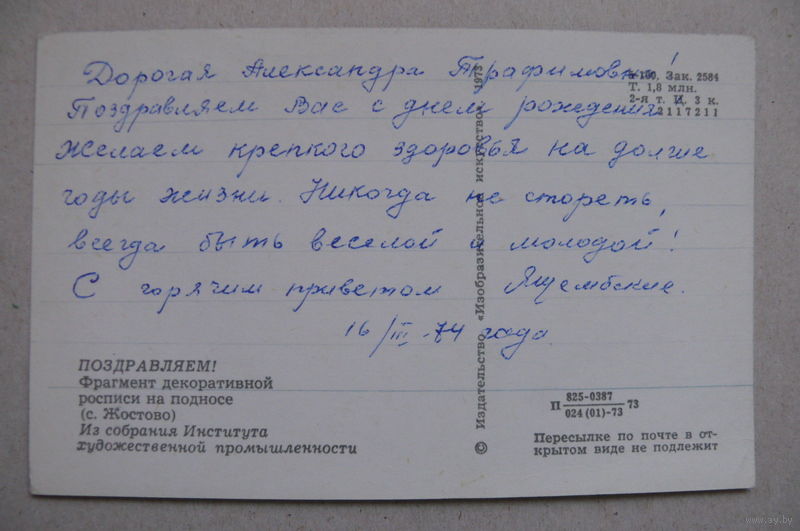 Дорогая Александра Трафимовна!
Поздравляем Вас с днем рождения
желаем крепкого здоровья на долгие
годы жизни. Никогда не стореть,
всегда быть веселой и молодой!
С горячим приветом Ящембские.
16/III-74 года.
Зак. 2584
Т. 1,8 млн.
2-я т. И. 3 к.
2117211
ПОЗДРАВЛЯЕМ!
Фрагмент декоративной
росписи на подносе
(с. Жостово)
Из собрания Института
художественной промышленности
© Издательство «Изобразительное искусство». 1973
П 825-0387
024 (01)-73 73
Пересылке по почте в от-
крытом виде не подлежит
www.ay.by